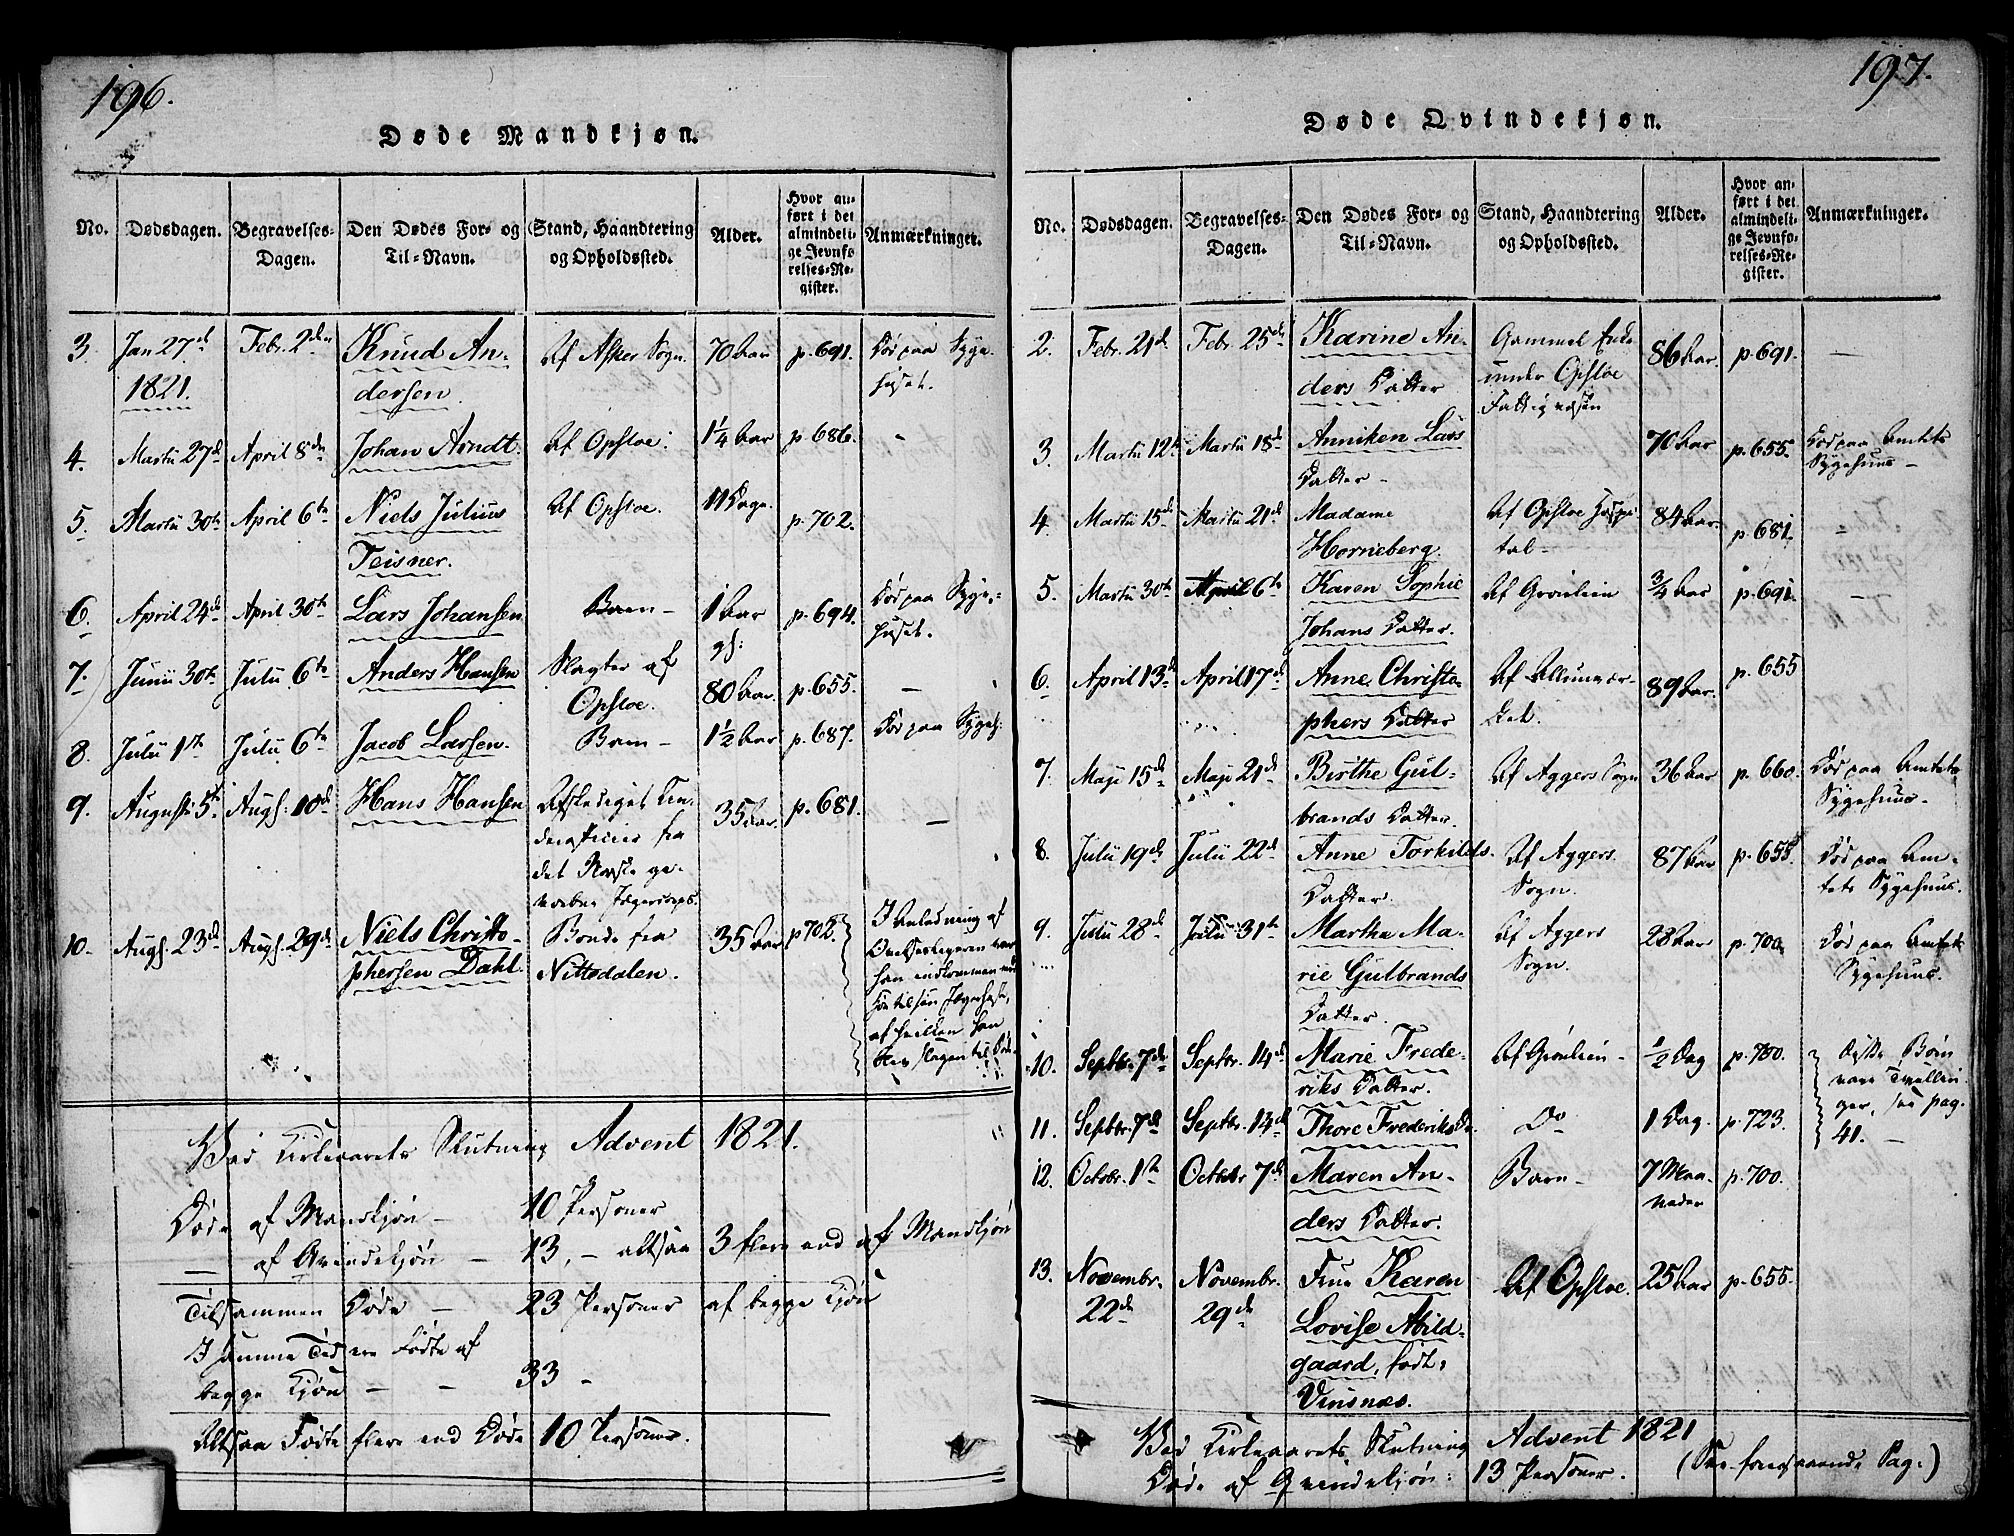 196.
Døde Mandkjøn.
No. Dødsdagen. Begravelses- Dagen. Den Dødes For- og Til-Navn. Stand, Haandtering og Opholdssted. Alder. Hvor anført i det almindelige Jevnførelses-Register. Anmærkninger.
3. Jan 27de Febr. 2den Knud An- Af Asker Sogn. 70 Aar p. 691. Død paa Syge-
1821. dersen. huset.
4. Martii 27de April 8de Johan Arndt. Af Opsloe. 1¼ Aar p. 686. -
5. Martii 30te April 6te Niels Julius Af Opsloe. 11 Dage. p. 702.
Teisner.
6. April 24de April 30te Lars Johansen Barn - 1 Aar p. 694. Død paa Syge-
huset.
7. Junii 30te Julii 6te Anders Hansen Slagter af 80 Aar p. 655. -
Opsloe.
8. Julii 1ste Julii 6te Jacob Larsen. Barn - 1½ Aar p. 687. Død paa Sygeh:
9. Augusti 5te Aug. 10de Hans Hansen Afskediget Un- 35 Aar. p. 681. -
derofficier fra
det Norske ge-
vorbne Jægercorps.
10. Aug. 23de Aug. 29de Niels Christo- Bonde fra 35 Aar p. 702. I Anledning af
phersen Dahl. Nittedalen.
han indkommen
af hvilken han
blev slagen til Døde
Ved Kirkeaarets Slutning Advent 1821.
Døde af Mandkjøn - 10 Personer
— af Qvindekjøn - 13, - altsaa 3 flere end af Mandkjøn
Tilsammen Døde - 23 Personer af begge Kjøn
I samme Tid ere Fødte af
begge Kjøn - - 33 -
Altsaa Fødte flere end Døde 10 Personer.
197.
Døde Qvindekjøn.
No. Dødsdagen. Begravelses- Dagen. Den Dødes For- og Til-Navn. Stand, Haandtering og Opholdssted. Alder. Hvor anført i det almindelige Jevnførelses-Register. Anmærkninger.
2. Febr. 21de Febr. 25de Karine An- Gammel Enke 86 Aar. p. 691. —
ders Datter under Opsloe
Fattigvæsen
3. Martii 12te Martii 18de Anniken Lars 70 Aar p. 655. Død paa Amtets
Datter - Sygehuus -
4. Martii 15de Martii 21de Madame Af Opsloe Hospi- 84 Aar. p. 681. -
Horneberg. tal -
5. Martii 30te April 6te Karen Sophie Af Grønlien ¾ Aar p. 691. —
Johans Datter.
6. April 13de April 17de Anne Christo- 89 Aar. p. 655
phers Datter
7. Maji 15de Maji 21de Birthe Gul- Af Aggers Sogn 36 Aar p. 660. Død paa Amtets
brands Datter. Sygehuus -
8. Julii 19de Julii 22de Anne Torkilds- Af Aggers 87 Aar p. 655. Død paa Am-
Datter. Sogn. tets Sygehuus.
9. Julii 28de Julii 31te Martha Ma- Af Aggers 28 Aar p. 700. Død paa Amtets
rie Gulbrands Sogn. Sygehuus.
Datter.
10. Septbr. 7de Septbr. 14de Marie Frede- Af Grønlien - ½ Dag p. 700. Disse Børn
riks Datter. vare Tvillin-
11. Septbr. 7de Septbr. 14de Thore Frederiks D. Do 1 Dag. p. 723. ger, see pag.
41. -
12. Octobr. 1ste Octobr 7de Maren An- Barn - 7 Maa- p. 700.
ders Datter. neder
13. Novembr. Novembr. Frue Karen Af Opsloe. 25 Aar p. 655.
22de 29de Lovise Abild-
gaard, født
Vinsnæs.
Ved Kirkeaarets Slutning Advent 1821
Døde af Qvindekjøn: 13 Personer. (See foregaaende Pag.)